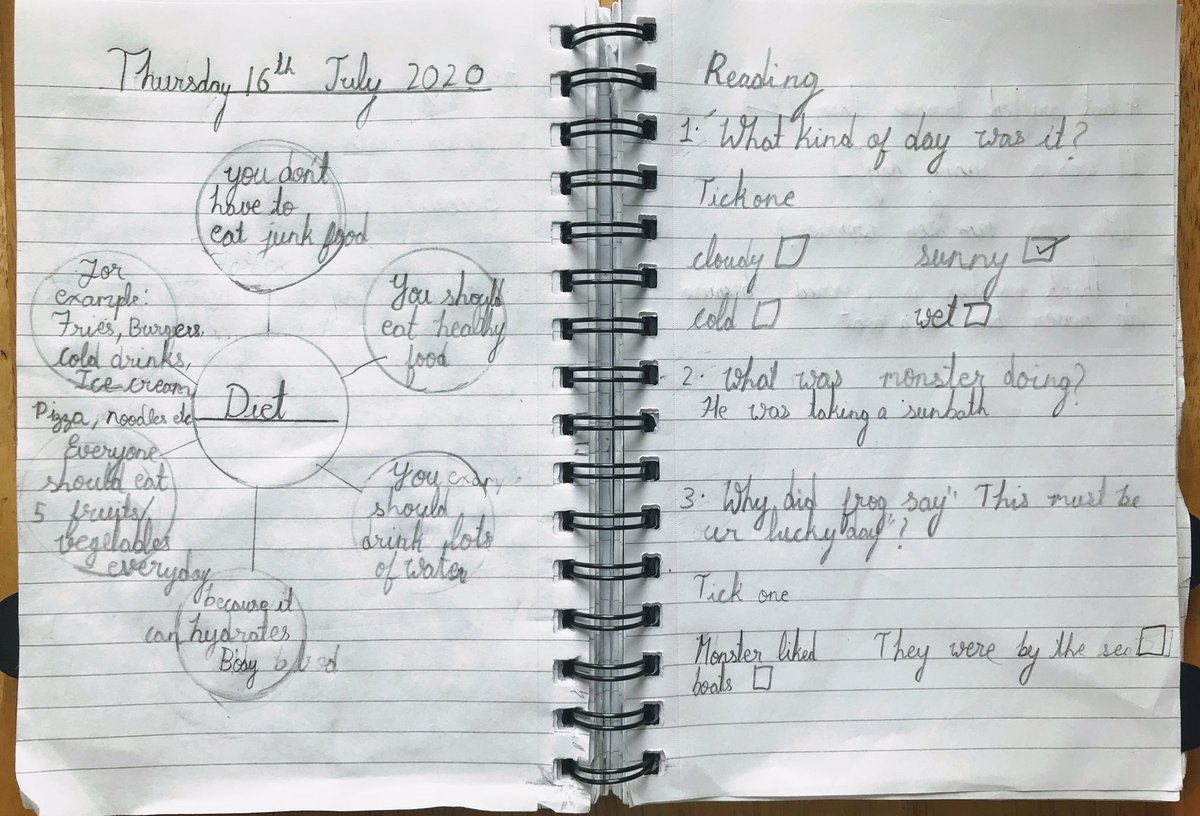 Thursday 16th July 2020
you don't
have to
eat junk food
You should
eat healthy
food
For
example:
Fries, Burgers,
cold drinks,
Ice cream,
Pizza, noodles etc
Diet
Everyone
should eat
5 fruits/
vegetables
everyday
You
should
drink lots
of water
because it
can hydrates
Body
Reading
1. What kind of day was it?
Tick one
cloudy ☐ sunny ☑
cold ☐ wet ☐
2. What was monster doing?
He was taking a sunbath
3. Why did frog say" This must be
ur lucky day"?
Tick one
Monster liked They were by the sea ☐
boats ☐